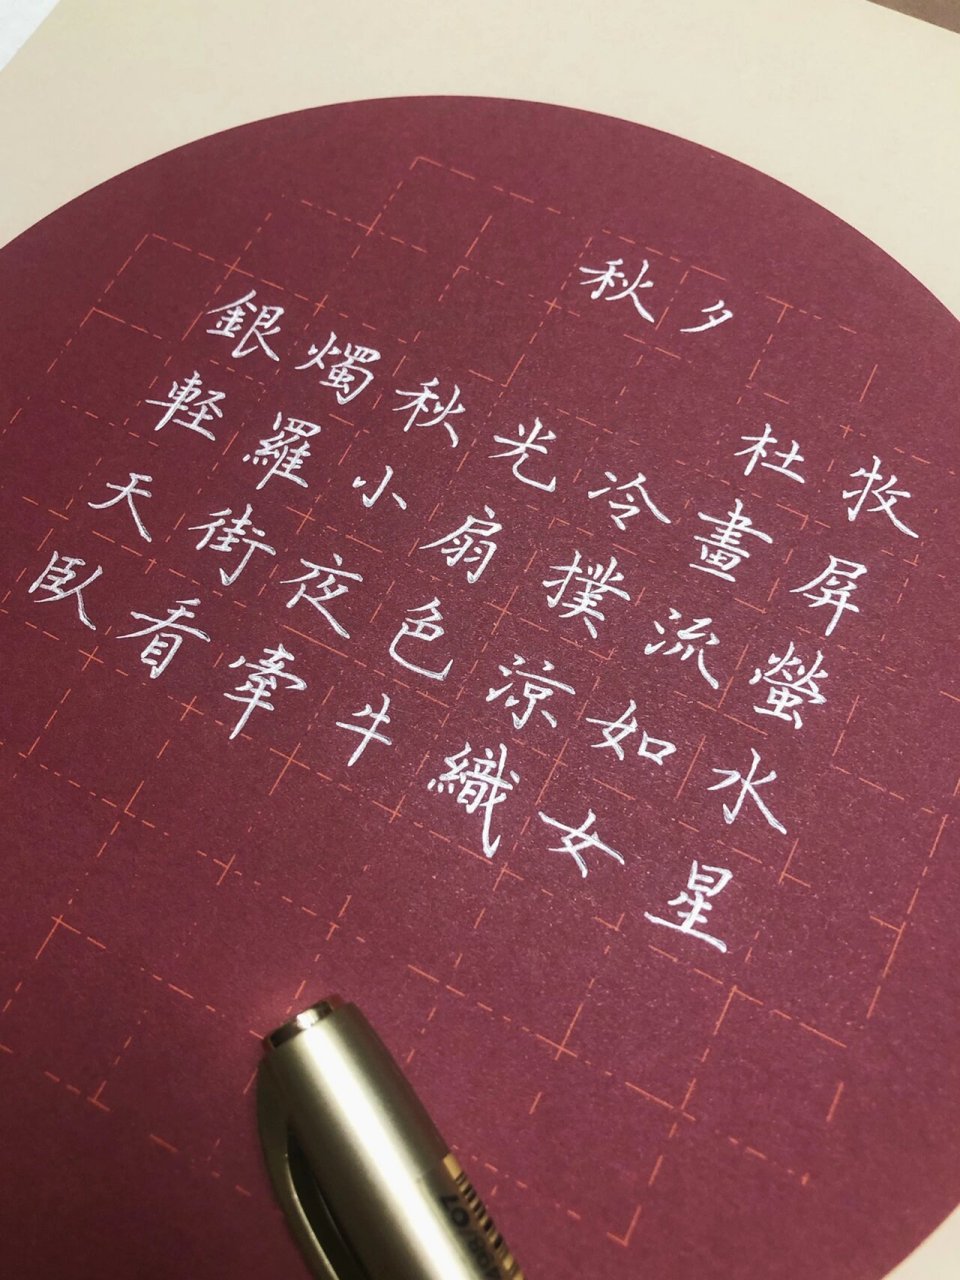 秋夕
杜牧
銀燭秋光冷畫屏
軽羅小扇撲流螢
天街夜色涼如水
臥看牽牛織女星